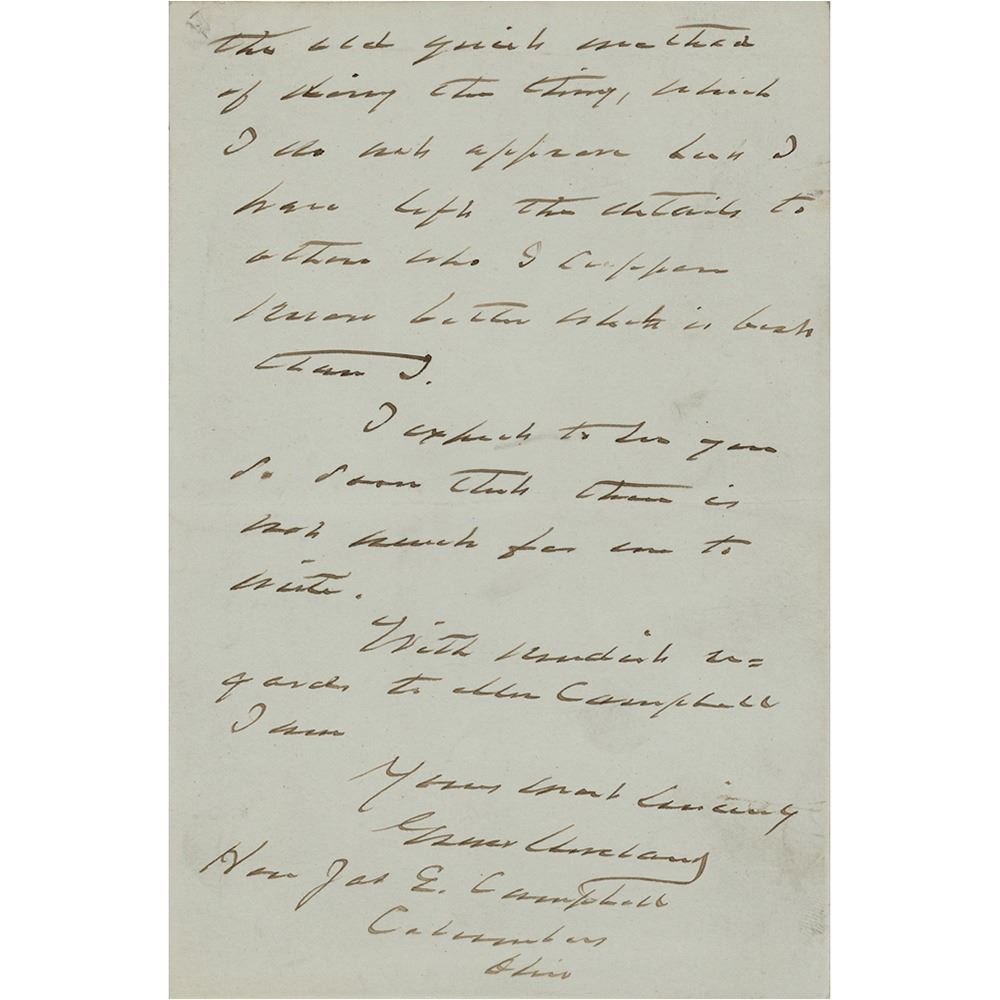 the old quiet method
of doing the thing, which
I do not approve but I
have left the details to
others who I suppose
know better what is best
than I.
I expect to see you
so soon that there is
not much for me to
write.
With kindest re=
gards to Mrs Campbell
I am
Yours most sincerely
Grover Cleveland
Hon Jas E. Campbell
Columbus
Ohio